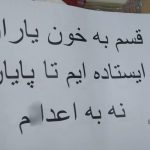 قسم به خون یارا
ایستاده ایم تا پایا
نه به اعدا م